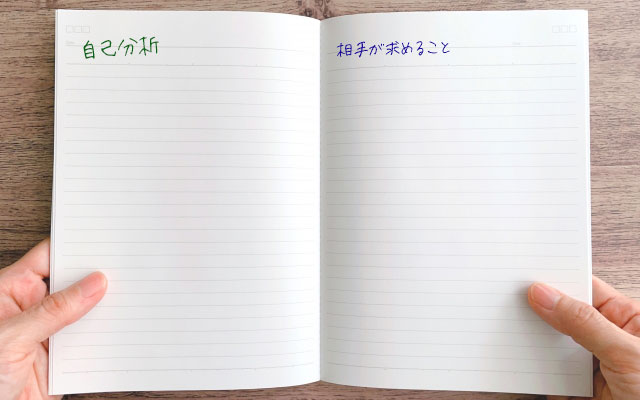 自己分析
相手が求めること